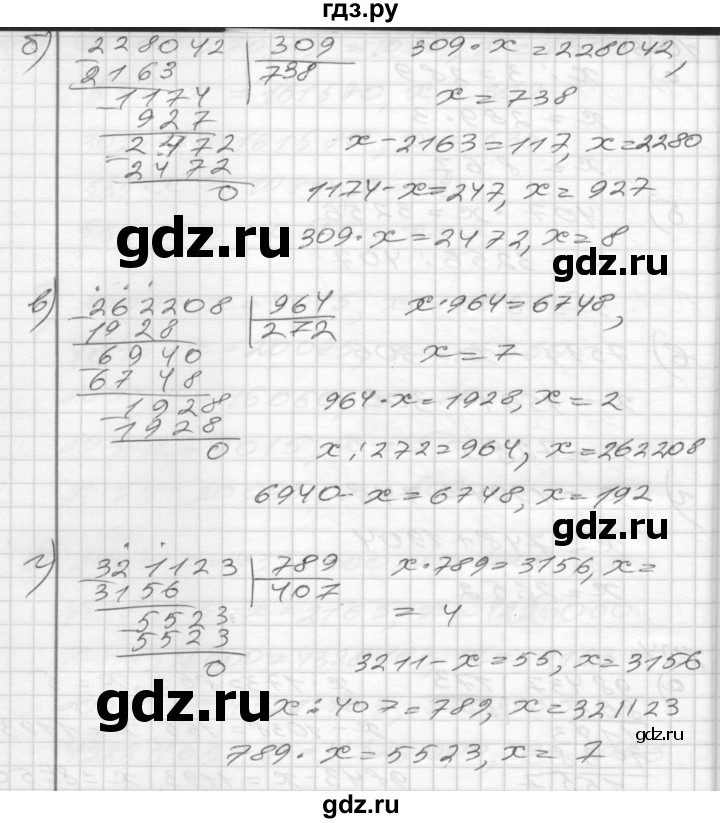 гдз.ру
б) 228042 309 309 · x = 228042,
2163 738
1174 x = 738
927
2472 x - 2163 = 117, x = 2280
2472
0 1174 - x = 247, x = 927
gdz.ru 309 · x = 2472, x = 8
gdz.ru
в) 262208 964 x · 964 = 6748,
1928 272
6940 x = 7
6748
1928 964 · x = 1928, x = 2
1928
0 x : 272 = 964, x = 262208
6940 - x = 6748, x = 192
gdz.ru
г) 321123 789 x · 789 = 3156, x =
3156 407
5523 = 4
5523
0 3211 - x = 55, x = 3156
gdz.ru x : 407 = 789, x = 321123
gdz.ru
789 · x = 5523, x = 7
gdz.ru